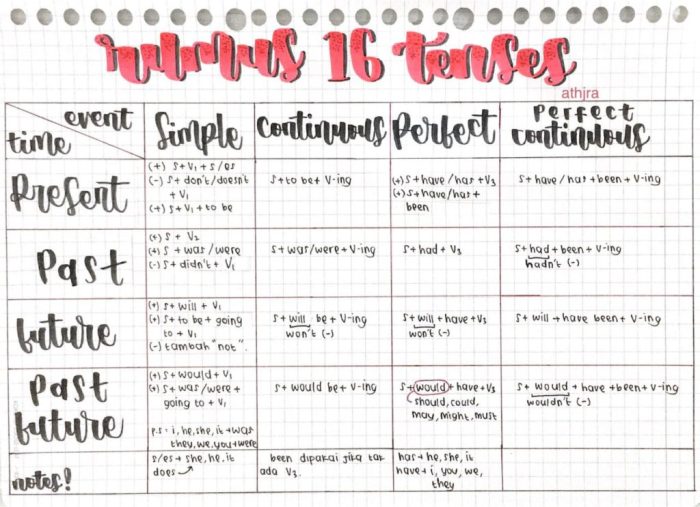 rumus 16 tenses
athjra
event
time
Simple
Continuous
Perfect
Perfect
continuous
Present
(+) S + V1 + s/es
(-) S + don't/doesn't
+ V1
(+) S + V1 + to be
S + to be + V-ing
(+) S + have/has + V3
(+) S + have/has +
been
S + have/has + been + V-ing
Past
(+) S + V2
(+) S + was/were
(-) S + didn't + V1
S + was/were + V-ing
S + had + V3
S + had + been + V-ing
hadn't (-)
future
(+) S + will + V1
(+) S + to be + going
to + V1
(-) tambah "not".
S + will be + V-ing
won't (-)
S + will + have + V3
won't (-)
S + will + have been + V-ing
Past
future
(+) S + would + V1
(+) S + was/were +
going to + V1
p.s : i, he, she, it + was
they, we, you + were
S + would be + V-ing
S + would + have + V3
should, could,
may, might, must
S + would + have + been + V-ing
wouldn't (-)
notes!
s/es → she, he, it
does
been dipakai jika tak
ada V3.
has → he, she, it
have → i, you, we,
they